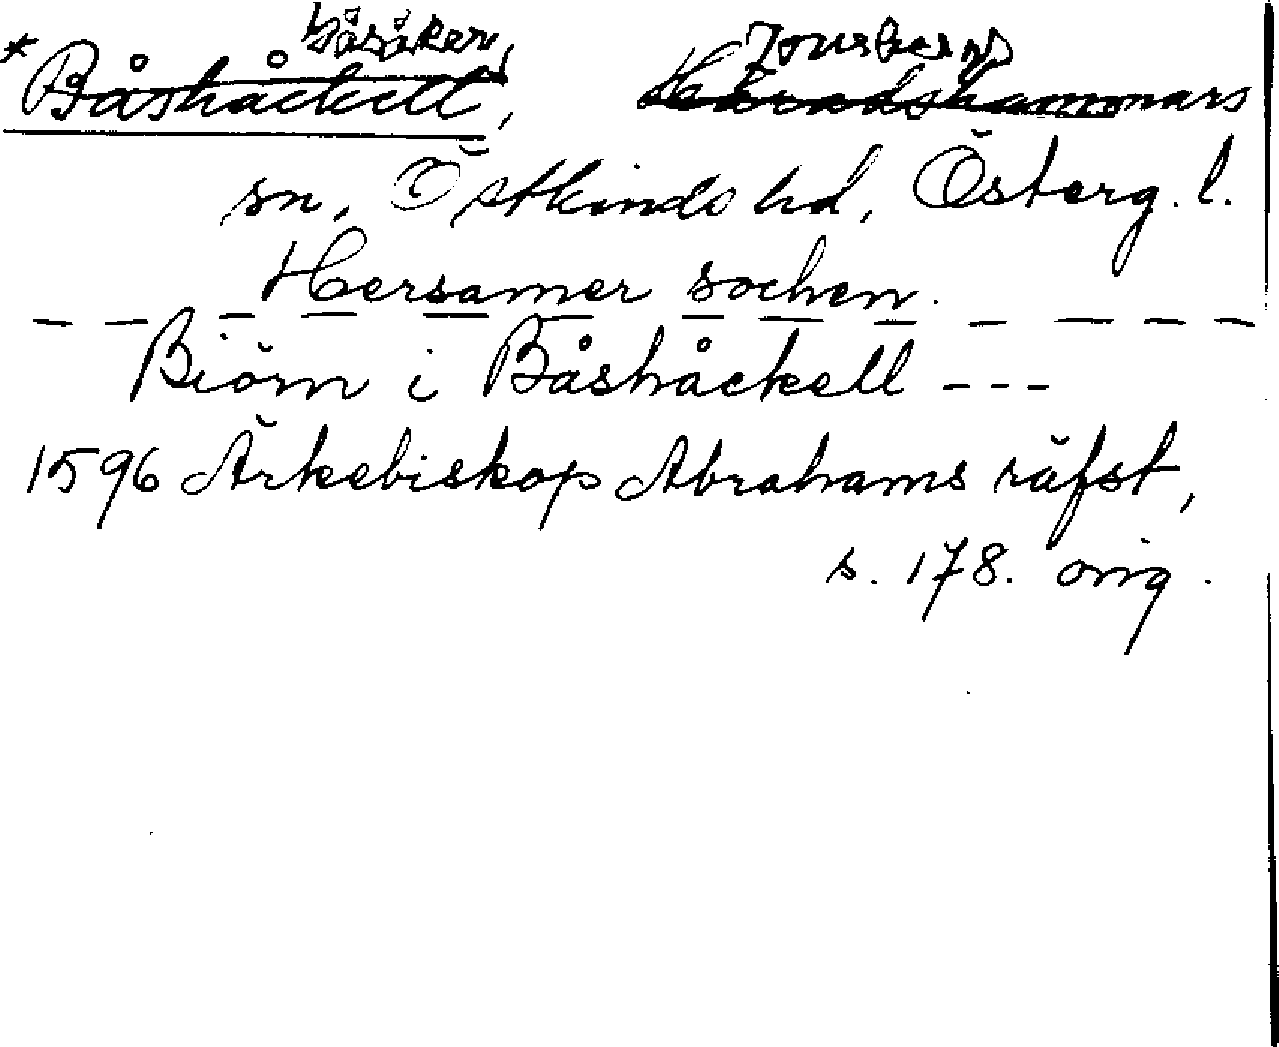 båsåker, Jonsbergs
*Båshåckell, Häradshammars
sn, Östkinds hd, Österg. l.
Hersamer sochen.
— — — — — — — — — — — — —
Biörn i Båshåckell ---
1596 Ärkebiskop Abrahams räfst,
s. 178. orig.